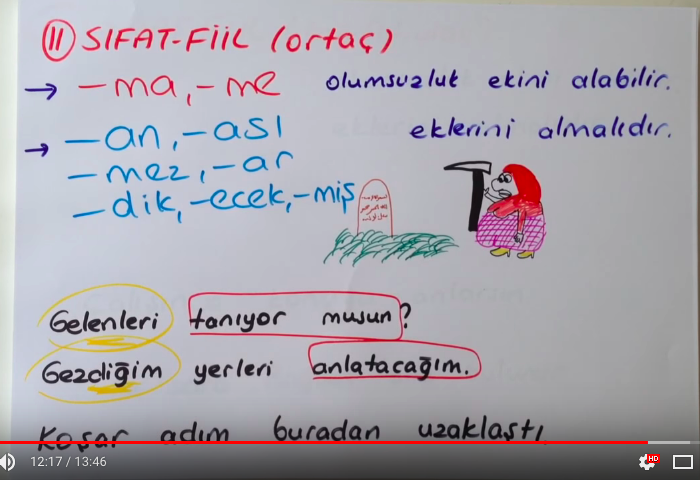 II SIFAT-FİİL (ortaç)
→ -ma, -me olumsuzluk ekini alabilir.
→ -an, -ası eklerini almalıdır.
-mez, -ar
-dik, -ecek, -miş
Gelenleri tanıyor musun?
Gezdiğim yerleri anlatacağım.
Koşar adım buradan uzaklaştı
12:17 / 13:46
HD